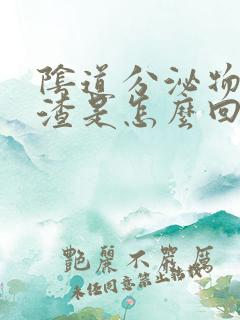 陰道分泌物
渣是怎麼回
艷麗不嚴厲
未經同意禁止轉載